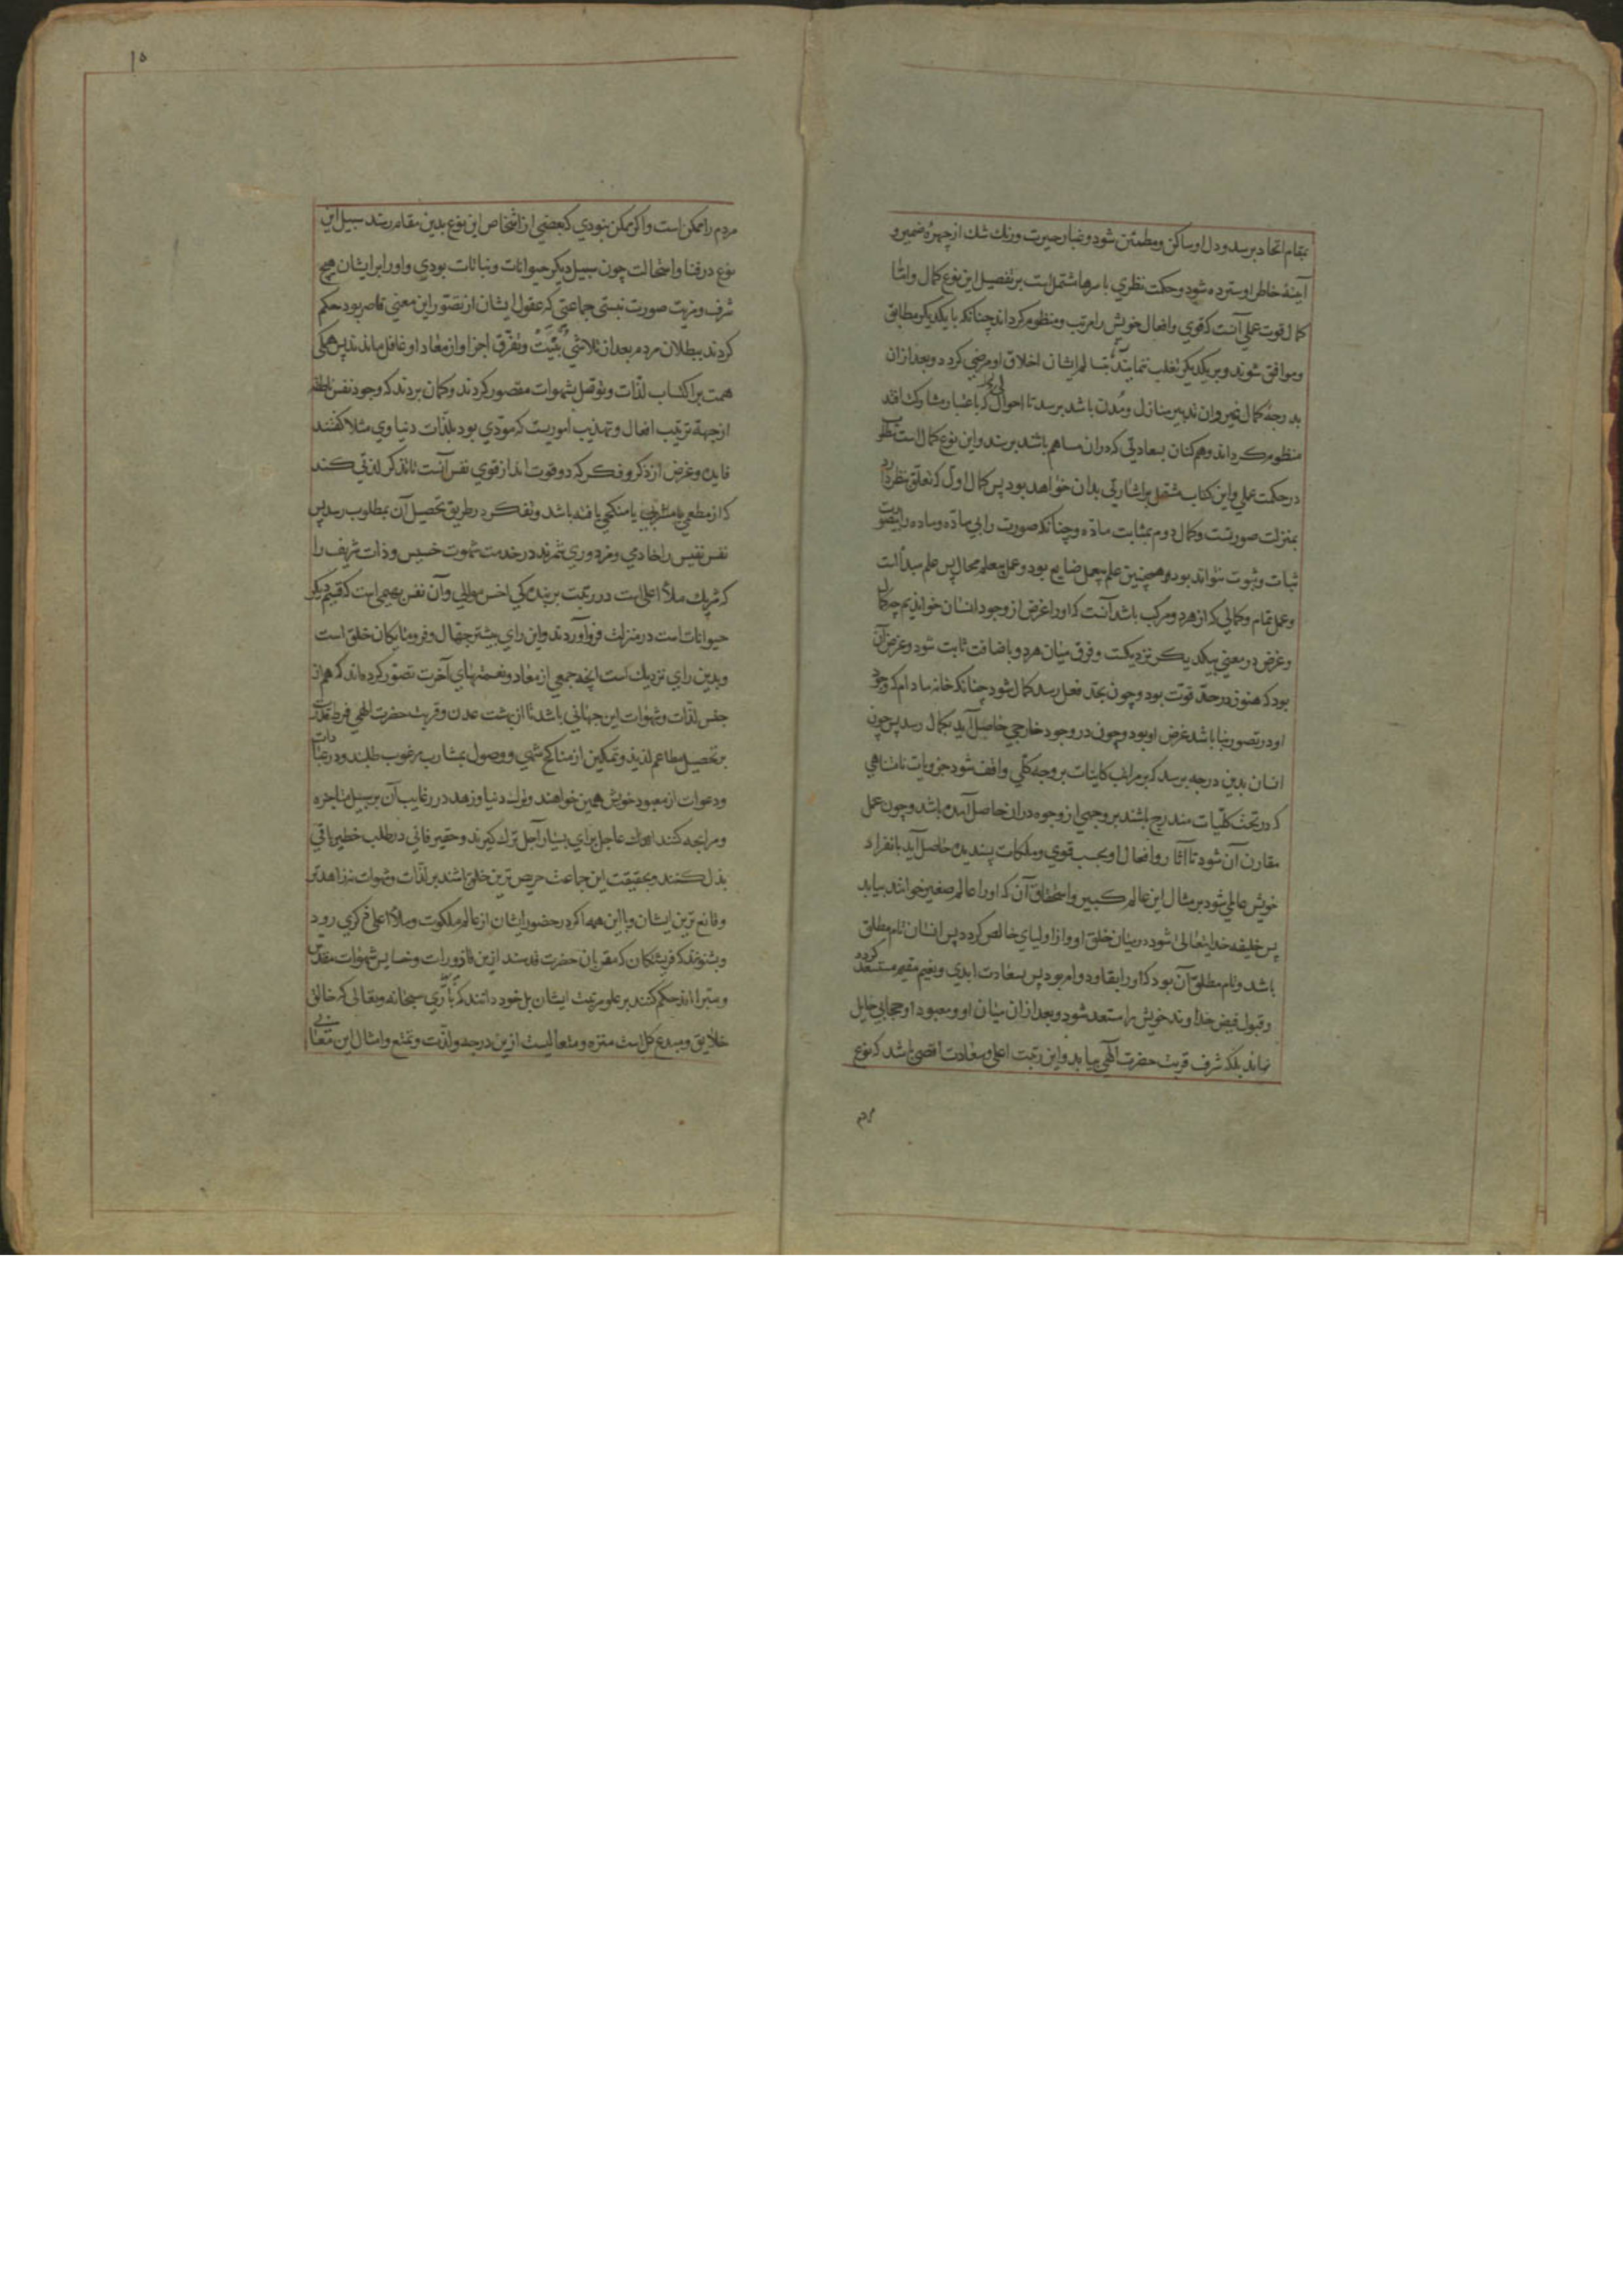 بمقام اتحاد برسد و دل او ساکن و مطمئن شود و غبار حیرت و زنك شك از چهرهٔ ضمیر و
آینهٔ خاطر او سترده شود و حکمت نظري با سرها مشتمل است بر تفصیل این نوع کمال و امّا
کمال قوت عملي آنست که قوي و افعال خویش را مرتب و منظوم کرداند چنانکه با یکدیکر مطابق
و موافق شوند و بر یکدیکر تغلب ننمایند بتسالم ایشان اخلاق او مرضي کردد و بعد از ان
بدرجهٔ کمال غیر و ان تدبیر منازل و مُدن باشد برسد تا احوالی که باعتبار مشارکت افتد
منظوم کرداند و همکنان بسعادتي که در ان مساهم باشد برسند و این نوع کمال است
در حکمت عملي و این کتاب مشتمل بر اشارتي بدان خواهد بود پس کمال اول که تعلّق بنظر دارد
بمنزلت صورتست و کمال دوم بمثابت مادّه و چنانکه صورت را بي مادّه و ماده را بیصورت
ثبات و ثبوت نتواند بود همچنین علم بیعمل ضایع بود و عمل بیعلم محال پس علم مبدأ است
و عمل تمام و کمالي که از هر دو مرکب باشد آنست که اورا غرض از وجود انسان خواندیم چه کمال
و غرض در معني بیکدیکر نزدیکست و فرق میان هر دو باضافت ثابت شود و غرض آن
بود که هنوز در حدّ قوّت بود و چون بحدّ فعل رسد کمال شود چنانکه خانه مادام که وجود
او در تصور بنا باشد غرض او بود و چون در وجود خارجي حاصل آید بکمال رسد پس چون
انسان بدین درجه برسد که بر مراتب کاینات بر وجه کلّي واقف شود جزویات نامتناهي
که در تحت کلّیات مندرج باشند بر وجهي از وجوه در ان حاصل آمده باشد و چون عمل
مقارن آن شود تا آثار و افعال او بحسب قوي و ملکات پسندیده حاصل آید بانفراد
خویش عالمي شود بر مثال این عالم کبیر و استحقاق آن که اورا عالم صغیر خوانند بیابد
پس خلیفه خدایتعالی شود در میان خلق او و از اولیاي خالص کردد پس انسان تام مطلق
باشد و تام مطلق آن بود که او را بقا و دوام بود پس بسعادت ابدي و نعیم مقیم مستسعد کردد
و قبول فیض خداوند خویش را مستعد شود و بعد از ان میان او و معبود او حجابي حایل
نماند بلکه شرف قربت حضرت آلهي بیابد و این رتبت اعلی و سعادت اقصي باشد که نوع
مردم
۱۵
مردم را ممکن است و اکر ممکن نبودي که بعضي از اشخاص این نوع بدین مقام رسند سبیل این
نوع در فنا و استحالت چون سبیل دیکر حیوانات و نباتات بودي و اورا بر ایشان هیچ
شرف و مزیت صورت نبستي جماعتي که عقول ایشان از تصوّر این معني قاصر بود حکم
کردند ببطلان مردم بعد از تلاشي بُنیت و تفرّق اجزا و از معاد او غافل ماندند پس همکي
همت بر اکتساب لذّات و توصّل بشهوات مقصور کردند و کمان بردند که وجود نفس ناطقه
از جهة ترتیب افعال و تهذیب اموریست که مؤدّي بود بلذّات دنیاوي مثلا کفتند
فایده و غرض از ذکر و فکر که دو قوت اند از قوي نفس آنست تا تذکر لذتي کند
که از مطعمي یا مشربي یا منکحي یافته باشد و تفکر در طریق تحصیل آن بمطلوب رسد پس
نفس نفیس را خادمي و مزدوري شمرند در خدمت شهوت خسیس و ذات شریف را
که شریك ملأ اعلی است در رتبت بر بندکي اخس موالي و آن نفس بهیمي است که قسیم دیکر
حیوانات است در منزلت فرو آوردند و این راي بیشتر جهّال و فرومایکان خلق است
و بدین راي نزدیك است آنچه جمعي از معاد و نعمتهاي آخرت تصوّر کرده اند که هم از
جنس لذّات و شهوات این جهاني باشد تا از بهشت عدن و قربت حضرت الهي قدرت
بر تحصیل مطاعم لذیذ و تمکین از مناکح شهي و وصول بمشارب مرغوب طلبند و در عبادات
و دعوات از معبود خویش همین خواهند و ترك دنیا و زهد در رغایب آن بر سبیل متاجره
و مرابحه کنند اندك عاجل براي بسیار آجل ترك کیرند و حقیر فاني در طلب خطیر باقي
بذل کنند و بحقیقت این جماعت حریص ترین خلق باشند بر لذّات و شهوات نه زاهدتر
و قانع ترین ایشان و با این همه اکر در حضور ایشان از عالم ملکوت و ملأ اعلی ذکري رود
و بشنوند که فریشتکان که مقربان حضرت قدسند از ین قاذورات و خسایس شهوات مقدّس
و مبرا اند حکم کنند بر علو مرتبت ایشان بل خود دانند که باري سبحانه و تعالی که خالق
خلایق و مبدع کل است منزه و متعالیست از ین درجه و لذّت و تمتع و امثال این معاني